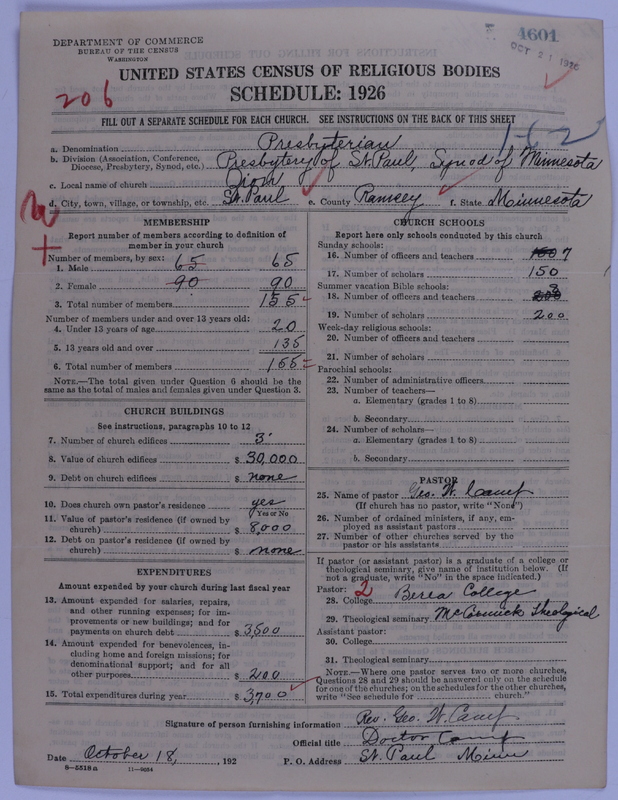 DEPARTMENT OF COMMERCE
BUREAU OF THE CENSUS
WASHINGTON
4601
OCT 21 1926
UNITED STATES CENSUS OF RELIGIOUS BODIES
SCHEDULE: 1926
206
FILL OUT A SEPARATE SCHEDULE FOR EACH CHURCH. SEE INSTRUCTIONS ON THE BACK OF THIS SHEET
a. Denomination Presbyterian
b. Division (Association, Conference, Diocese, Presbytery, Synod, etc.) Presbytery of St. Paul, Synod of Minnesota
c. Local name of church
d. City, town, village, or township, etc. St. Paul e. County Ramsey f. State Minnesota
MEMBERSHIP
Report number of members according to definition of
member in your church
Number of members, by sex:
1. Male 65 65
2. Female 90 90
3. Total number of members 155
Number of members under and over 13 years old:
4. Under 13 years of age 20
5. 13 years old and over 135
6. Total number of members 155
NOTE.—The total given under Question 6 should be the
same as the total of males and females given under Question 3.
CHURCH BUILDINGS
See instructions, paragraphs 10 to 12
7. Number of church edifices 3
8. Value of church edifices $ 30,000
9. Debt on church edifices $ none
10. Does church own pastor's residence yes
Yes or No
11. Value of pastor's residence (if owned by
church) $ 8,000
12. Debt on pastor's residence (if owned by
church) $ none
EXPENDITURES
Amount expended by your church during last fiscal year
13. Amount expended for salaries, repairs,
and other running expenses; for im-
provements or new buildings; and for
payments on church debt $ 3,500
14. Amount expended for benevolences, in-
cluding home and foreign missions; for
denominational support; and for all
other purposes $ 200
15. Total expenditures during year $ 3,700
CHURCH SCHOOLS
Report here only schools conducted by this church
Sunday schools:
16. Number of officers and teachers 7
17. Number of scholars 150
Summer vacation Bible schools:
18. Number of officers and teachers 8
19. Number of scholars 200
Week-day religious schools:
20. Number of officers and teachers
21. Number of scholars
Parochial schools:
22. Number of administrative officers
23. Number of teachers—
a. Elementary (grades 1 to 8)
b. Secondary
24. Number of scholars—
a. Elementary (grades 1 to 8)
b. Secondary
PASTOR
25. Name of pastor Geo. W. Camp
(If church has no pastor, write "None")
26. Number of ordained ministers, if any, em-
ployed as assistant pastors
27. Number of other churches served by the
pastor or his assistants
If pastor (or assistant pastor) is a graduate of a college or
theological seminary, give name of institution below. (If
not a graduate, write "No" in the space indicated.)
Pastor: 2
28. College Berea College
29. Theological seminary McCormick Theological
Assistant pastor:
30. College
31. Theological seminary
NOTE.—Where one pastor serves two or more churches,
Questions 28 and 29 should be answered only on the schedule
for one of the churches; on the schedules for the other churches,
write "See schedule for church."
Signature of person furnishing information Rev. Geo. W. Camp
Official title Doctor Camp
Date October 18, , 192 P. O. Address St. Paul Minn
8—5518a 11—9084